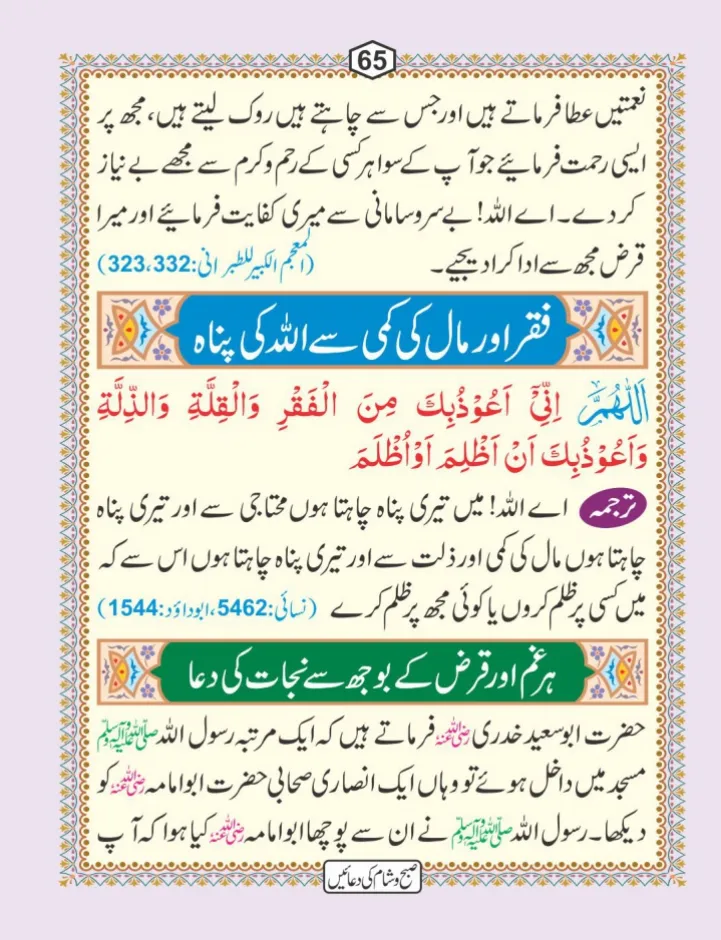 65
نعمتیں عطا فرماتے ہیں اور جس سے چاہتے ہیں روک لیتے ہیں، مجھ پر
ایسی رحمت فرمائیے جو آپ کے سوا ہر کسی کے رحم و کرم سے مجھے بے نیاز
کر دے۔ اے اللہ! بے سروسامانی سے میری کفایت فرمائیے اور میرا
قرض مجھ سے ادا کرا دیجیے۔ (المعجم الکبیر للطبرانی: 323،332)
فقر اور مال کی کمی سے اللہ کی پناہ
اَللّٰهُمَّ اِنِّیْٓ اَعُوْذُبِكَ مِنَ الْفَقْرِ وَالْقِلَّةِ وَالذِّلَّةِ
وَاَعُوْذُبِكَ اَنْ اَظْلِمَ اَوْاُظْلَمَ
ترجمہ اے اللہ! میں تیری پناہ چاہتا ہوں محتاجی سے اور تیری پناہ
چاہتا ہوں مال کی کمی اور ذلت سے اور تیری پناہ چاہتا ہوں اس سے کہ
میں کسی پر ظلم کروں یا کوئی مجھ پر ظلم کرے (نسائی: 5462، ابوداؤد: 1544)
ہر غم اور قرض کے بوجھ سے نجات کی دعا
حضرت ابوسعید خدری رضی اللہ عنہ فرماتے ہیں کہ ایک مرتبہ رسول اللہ صلی اللہ علیہ وآلہ وسلم
مسجد میں داخل ہوئے تو وہاں ایک انصاری صحابی حضرت ابوامامہ رضی اللہ عنہ کو
دیکھا۔ رسول اللہ صلی اللہ علیہ وآلہ وسلم نے ان سے پوچھا ابوامامہ رضی اللہ عنہ کیا ہوا کہ آپ
صبح و شام کی دعائیں